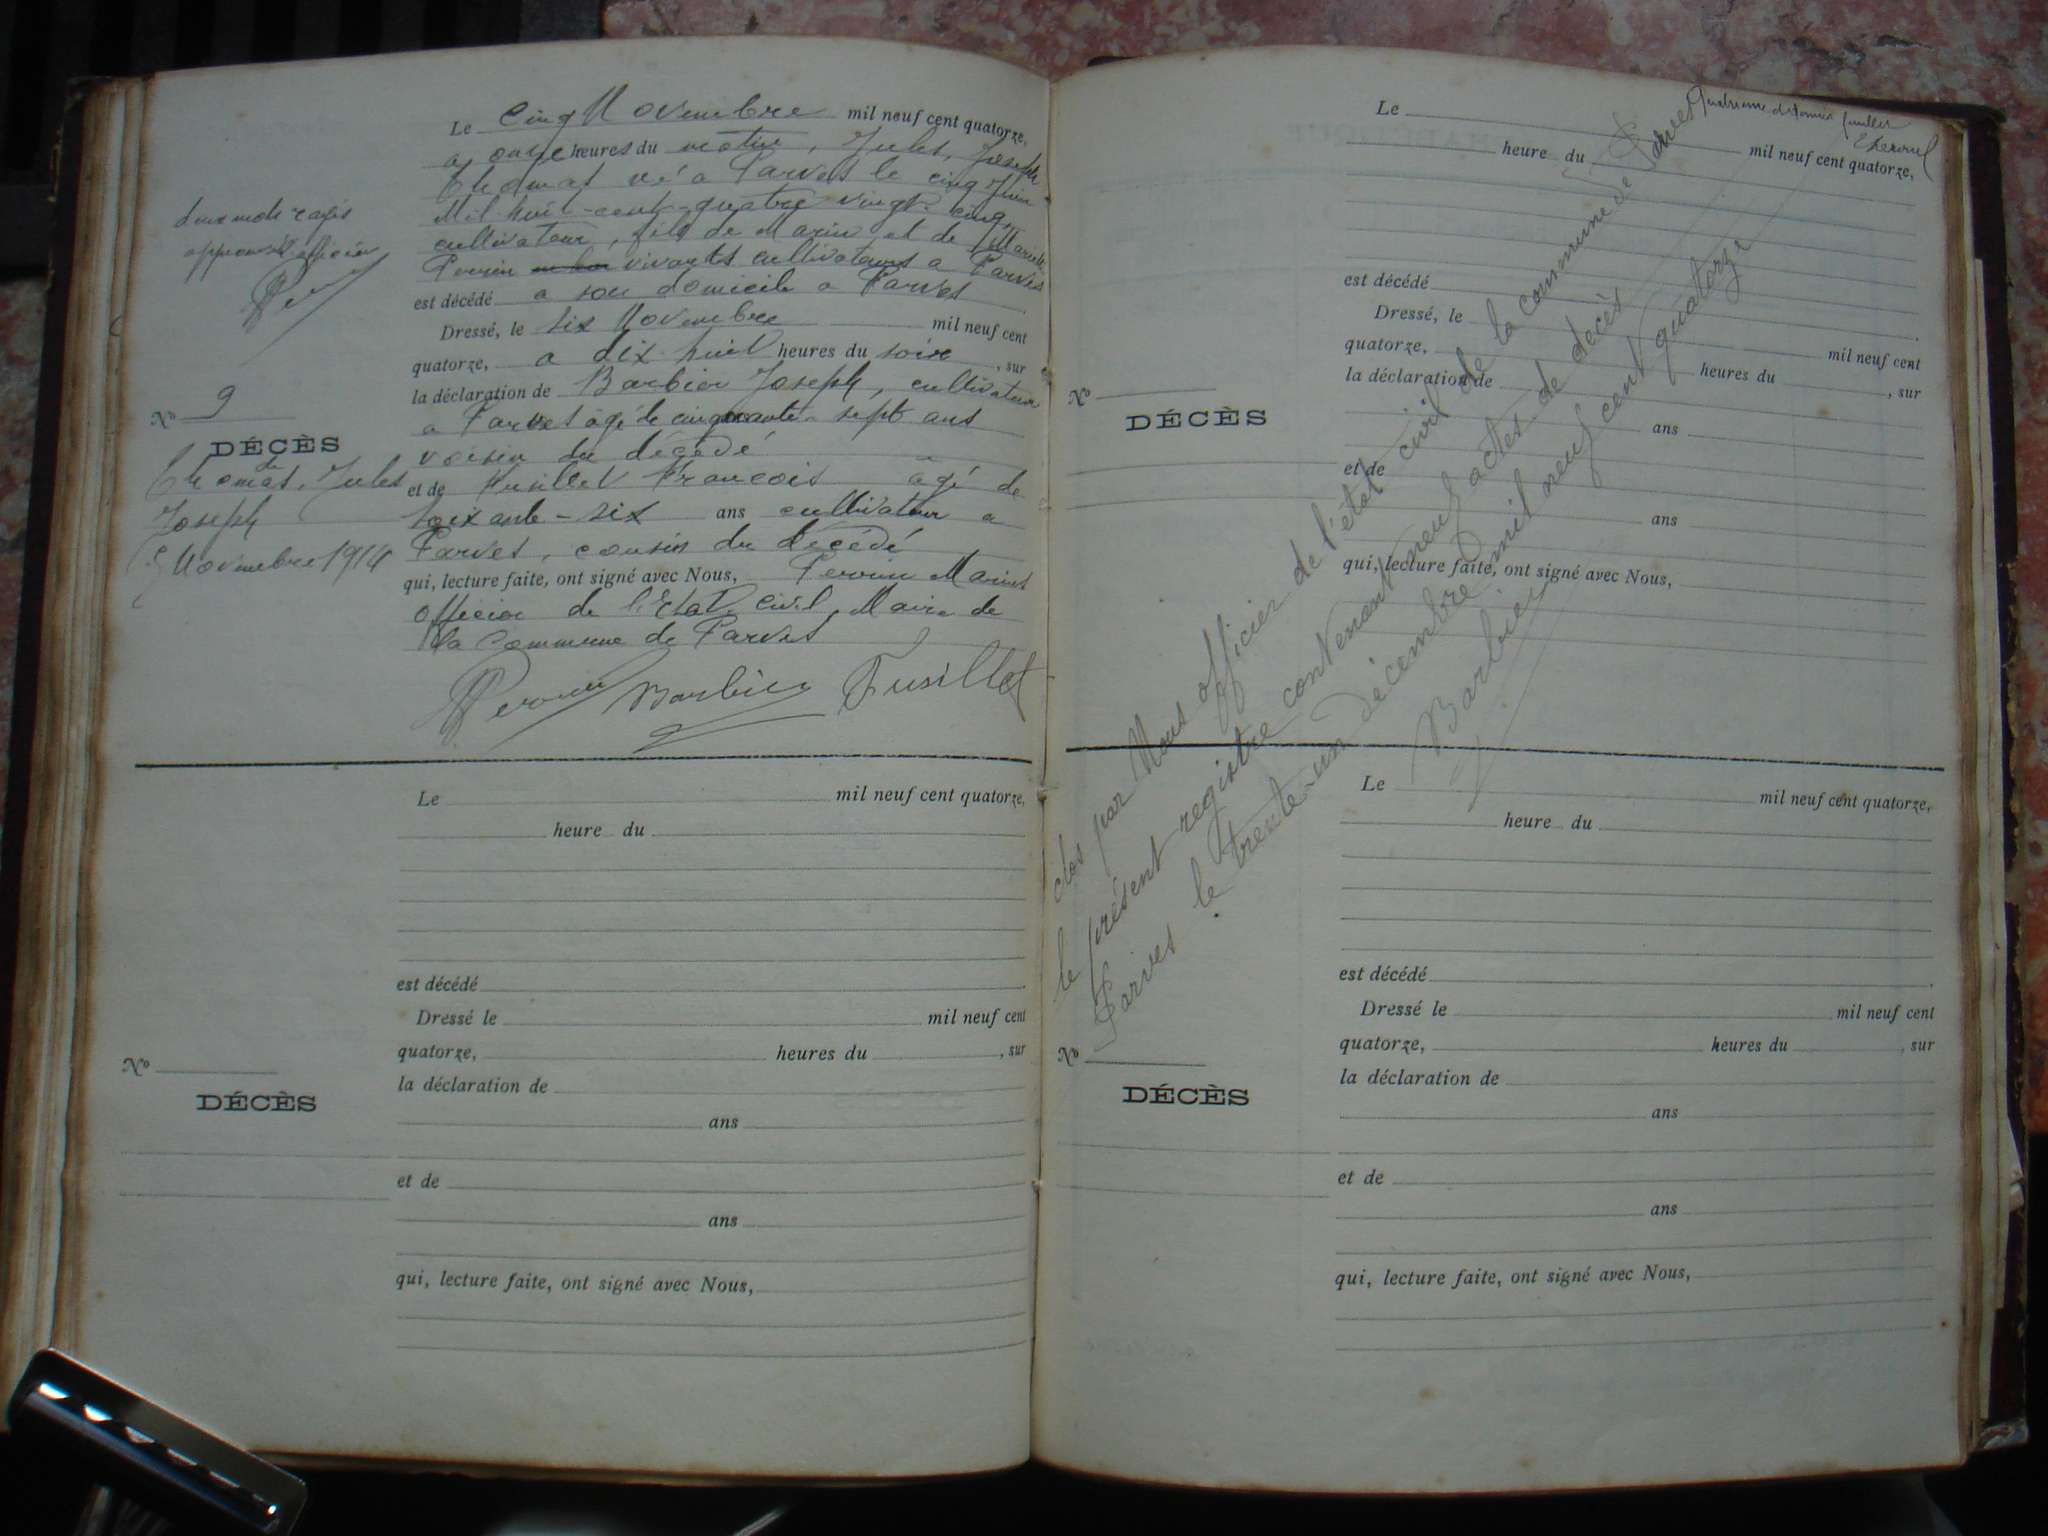 Le Cinq Novembre mil neuf cent quatorze,
à onze heures du matin, Jules, Joseph
Thomas né a Parves le cinq Juin
Mil huit-cent-quatre vingt-cinq,
cultivateur, fils de Marin et de Mariette
Perrin vivants cultivateurs a Parves
est décédé a son domicile a Parves
Dressé, le six Novembre mil neuf cent
quatorze, a dix huit heures du soir, sur
la déclaration de Barbier Joseph, cultivateur
a Parves âgé de cinquante-sept ans
voisin du décédé
et de Fusillet François âgé de
soixante-six ans cultivateur a
Parves, cousin du décédé
qui, lecture faite, ont signé avec Nous, Perrin Marius
officier de l'Etat civil, Maire de
la Commune de Parves
Perrin Barbier Fusillet
deux mots rayés
approuvés
No 9
DÉCÈS
de
Thomas, Jules
Joseph
5 Novembre 1914
Le mil neuf cent quatorze,
heure du
est décédé
Dressé le mil neuf cent
quatorze, heures du , sur
la déclaration de
ans
et de
ans
qui, lecture faite, ont signé avec Nous,
No
DÉCÈS
Quatrième et dernier feuillet
Le
heure du mil neuf cent quatorze,
est décédé
Dressé, le
quatorze, mil neuf cent
la déclaration de heures du , sur
ans
et de
ans
qui, lecture faite, ont signé avec Nous,
No
DÉCÈS
clos par Nous officier de l'état civil de la commune de Parves
le présent registre contenant neuf actes de décès
Parves le trente-un décembre mil neuf cent quatorze
Barbier
Le mil neuf cent quatorze,
heure du
est décédé
Dressé le mil neuf cent
quatorze, heures du , sur
la déclaration de
ans
et de
ans
qui, lecture faite, ont signé avec Nous,
No
DÉCÈS